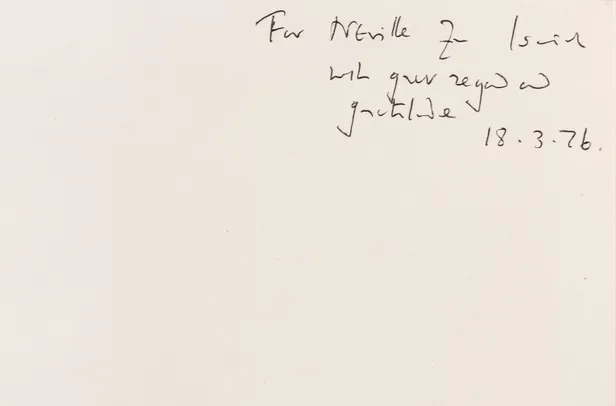 For Neville
with great regard and
gratitude
18.3.76.